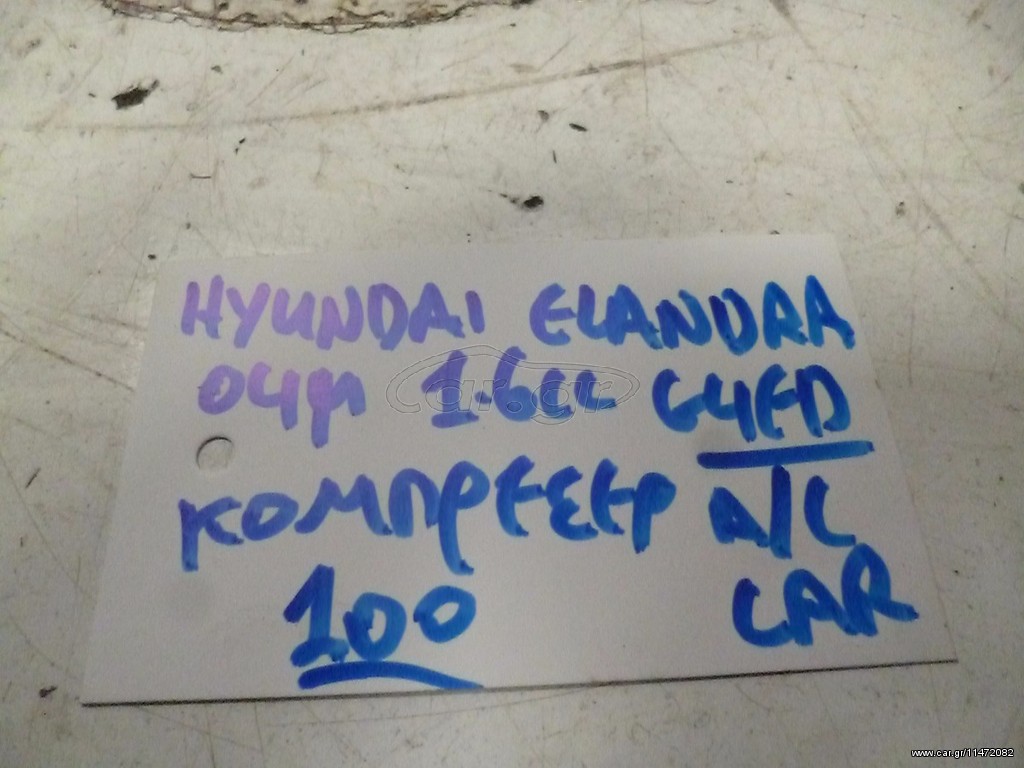 HYUNDAI ELANDRA
04μ 1.6cc G4ED
ΚΟΜΠΡΕΣΕΡ A/C
100 CAR
car.gr
www.car.gr/11472082